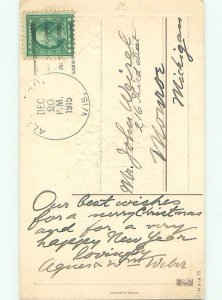 DEC
20
P.M.
1915
Mr. John Weisel
Monroe
Michigan
Our best wishes
for a merry Christmas
and for a very
happy New Year
lovingly
Agnes